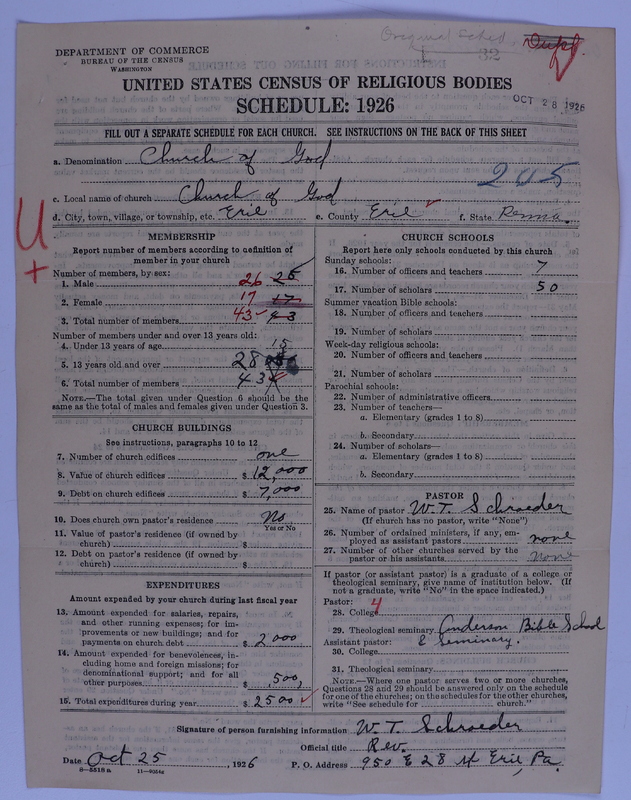 Original Sched.
32
Dupl.
DEPARTMENT OF COMMERCE
BUREAU OF THE CENSUS
WASHINGTON
UNITED STATES CENSUS OF RELIGIOUS BODIES
SCHEDULE: 1926
OCT 28 1926
FILL OUT A SEPARATE SCHEDULE FOR EACH CHURCH. SEE INSTRUCTIONS ON THE BACK OF THIS SHEET
a. Denomination Church of God
205
c. Local name of church Church of God
d. City, town, village, or township, etc. Erie e. County Erie f. State Penna.
U
+
MEMBERSHIP
Report number of members according to definition of
member in your church
Number of members, by sex:
1. Male 26 26
2. Female 17 17
3. Total number of members 43 43
Number of members under and over 13 years old:
4. Under 13 years of age 15
5. 13 years old and over 28
6. Total number of members 43
NOTE.—The total given under Question 6 should be the
same as the total of males and females given under Question 3.
CHURCH BUILDINGS
See instructions, paragraphs 10 to 12
7. Number of church edifices one
8. Value of church edifices $ 12,000
9. Debt on church edifices $ 7,000
10. Does church own pastor's residence No
Yes or No
11. Value of pastor's residence (if owned by
church) $
12. Debt on pastor's residence (if owned by
church) $
EXPENDITURES
Amount expended by your church during last fiscal year
13. Amount expended for salaries, repairs,
and other running expenses; for im-
provements or new buildings; and for
payments on church debt $ 2000
14. Amount expended for benevolences, in-
cluding home and foreign missions; for
denominational support; and for all
other purposes $ 500
15. Total expenditures during year $ 2500
CHURCH SCHOOLS
Report here only schools conducted by this church
Sunday schools:
16. Number of officers and teachers 7
17. Number of scholars 50
Summer vacation Bible schools:
18. Number of officers and teachers
19. Number of scholars
Week-day religious schools:
20. Number of officers and teachers
21. Number of scholars
Parochial schools:
22. Number of administrative officers
23. Number of teachers—
a. Elementary (grades 1 to 8)
b. Secondary
24. Number of scholars—
a. Elementary (grades 1 to 8)
b. Secondary
PASTOR
25. Name of pastor W. T. Schroeder
(If church has no pastor, write "None")
26. Number of ordained ministers, if any, em-
ployed as assistant pastors none
27. Number of other churches served by the
pastor or his assistants none
If pastor (or assistant pastor) is a graduate of a college or
theological seminary, give name of institution below. (If
not a graduate, write "No" in the space indicated.)
Pastor:
28. College 4
29. Theological seminary Anderson Bible School
Assistant pastor: & Seminary.
30. College
31. Theological seminary
NOTE.—Where one pastor serves two or more churches,
Questions 28 and 29 should be answered only on the schedule
for one of the churches; on the schedules for the other churches,
write "See schedule for church."
Signature of person furnishing information W. T. Schroeder
Official title Rev.
Date Oct 25, 1926 P. O. Address 950 E 28 St Erie, Pa.
8—5518 a 11—9054